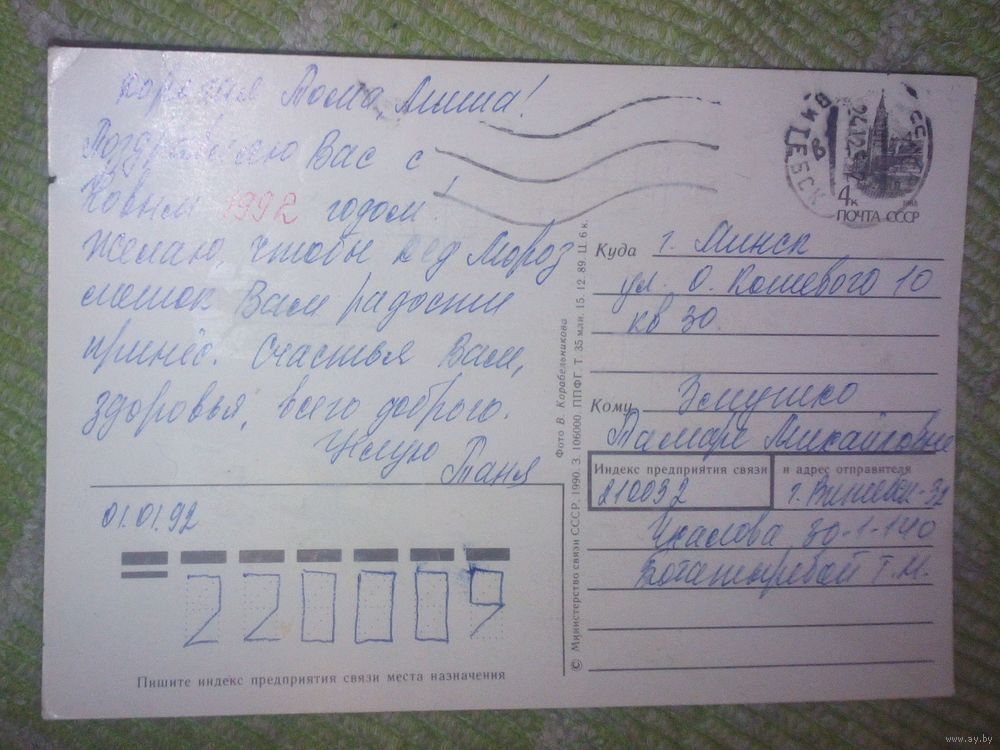 Дорогие Тома, Миша!
Поздравляю Вас с
Новым 1992 годом!
Желаю, чтобы дед Мороз
мешок Вам радости
принёс. Счастья Вам,
здоровья, всего доброго.
Целую Таня
01.01.92
220009
Пишите индекс предприятия связи места назначения
© Министерство связи СССР. 1990. З. 106000. ППФГ. Т 35 млн. 15. 12. 89. Ц. 6 к.
Фото В. Корабельникова
ВИТЕБСК
24.12
4к
1988
ПОЧТА СССР
Куда г. Минск
ул. О. Кошевого 10
кв 30.
Кому Змушко
Тамаре Михайловне
Индекс предприятия связи и адрес отправителя
210032 г. Витебск-32
Чкалова 30-1-140
Богатыревой Т.М.
www.ay.by